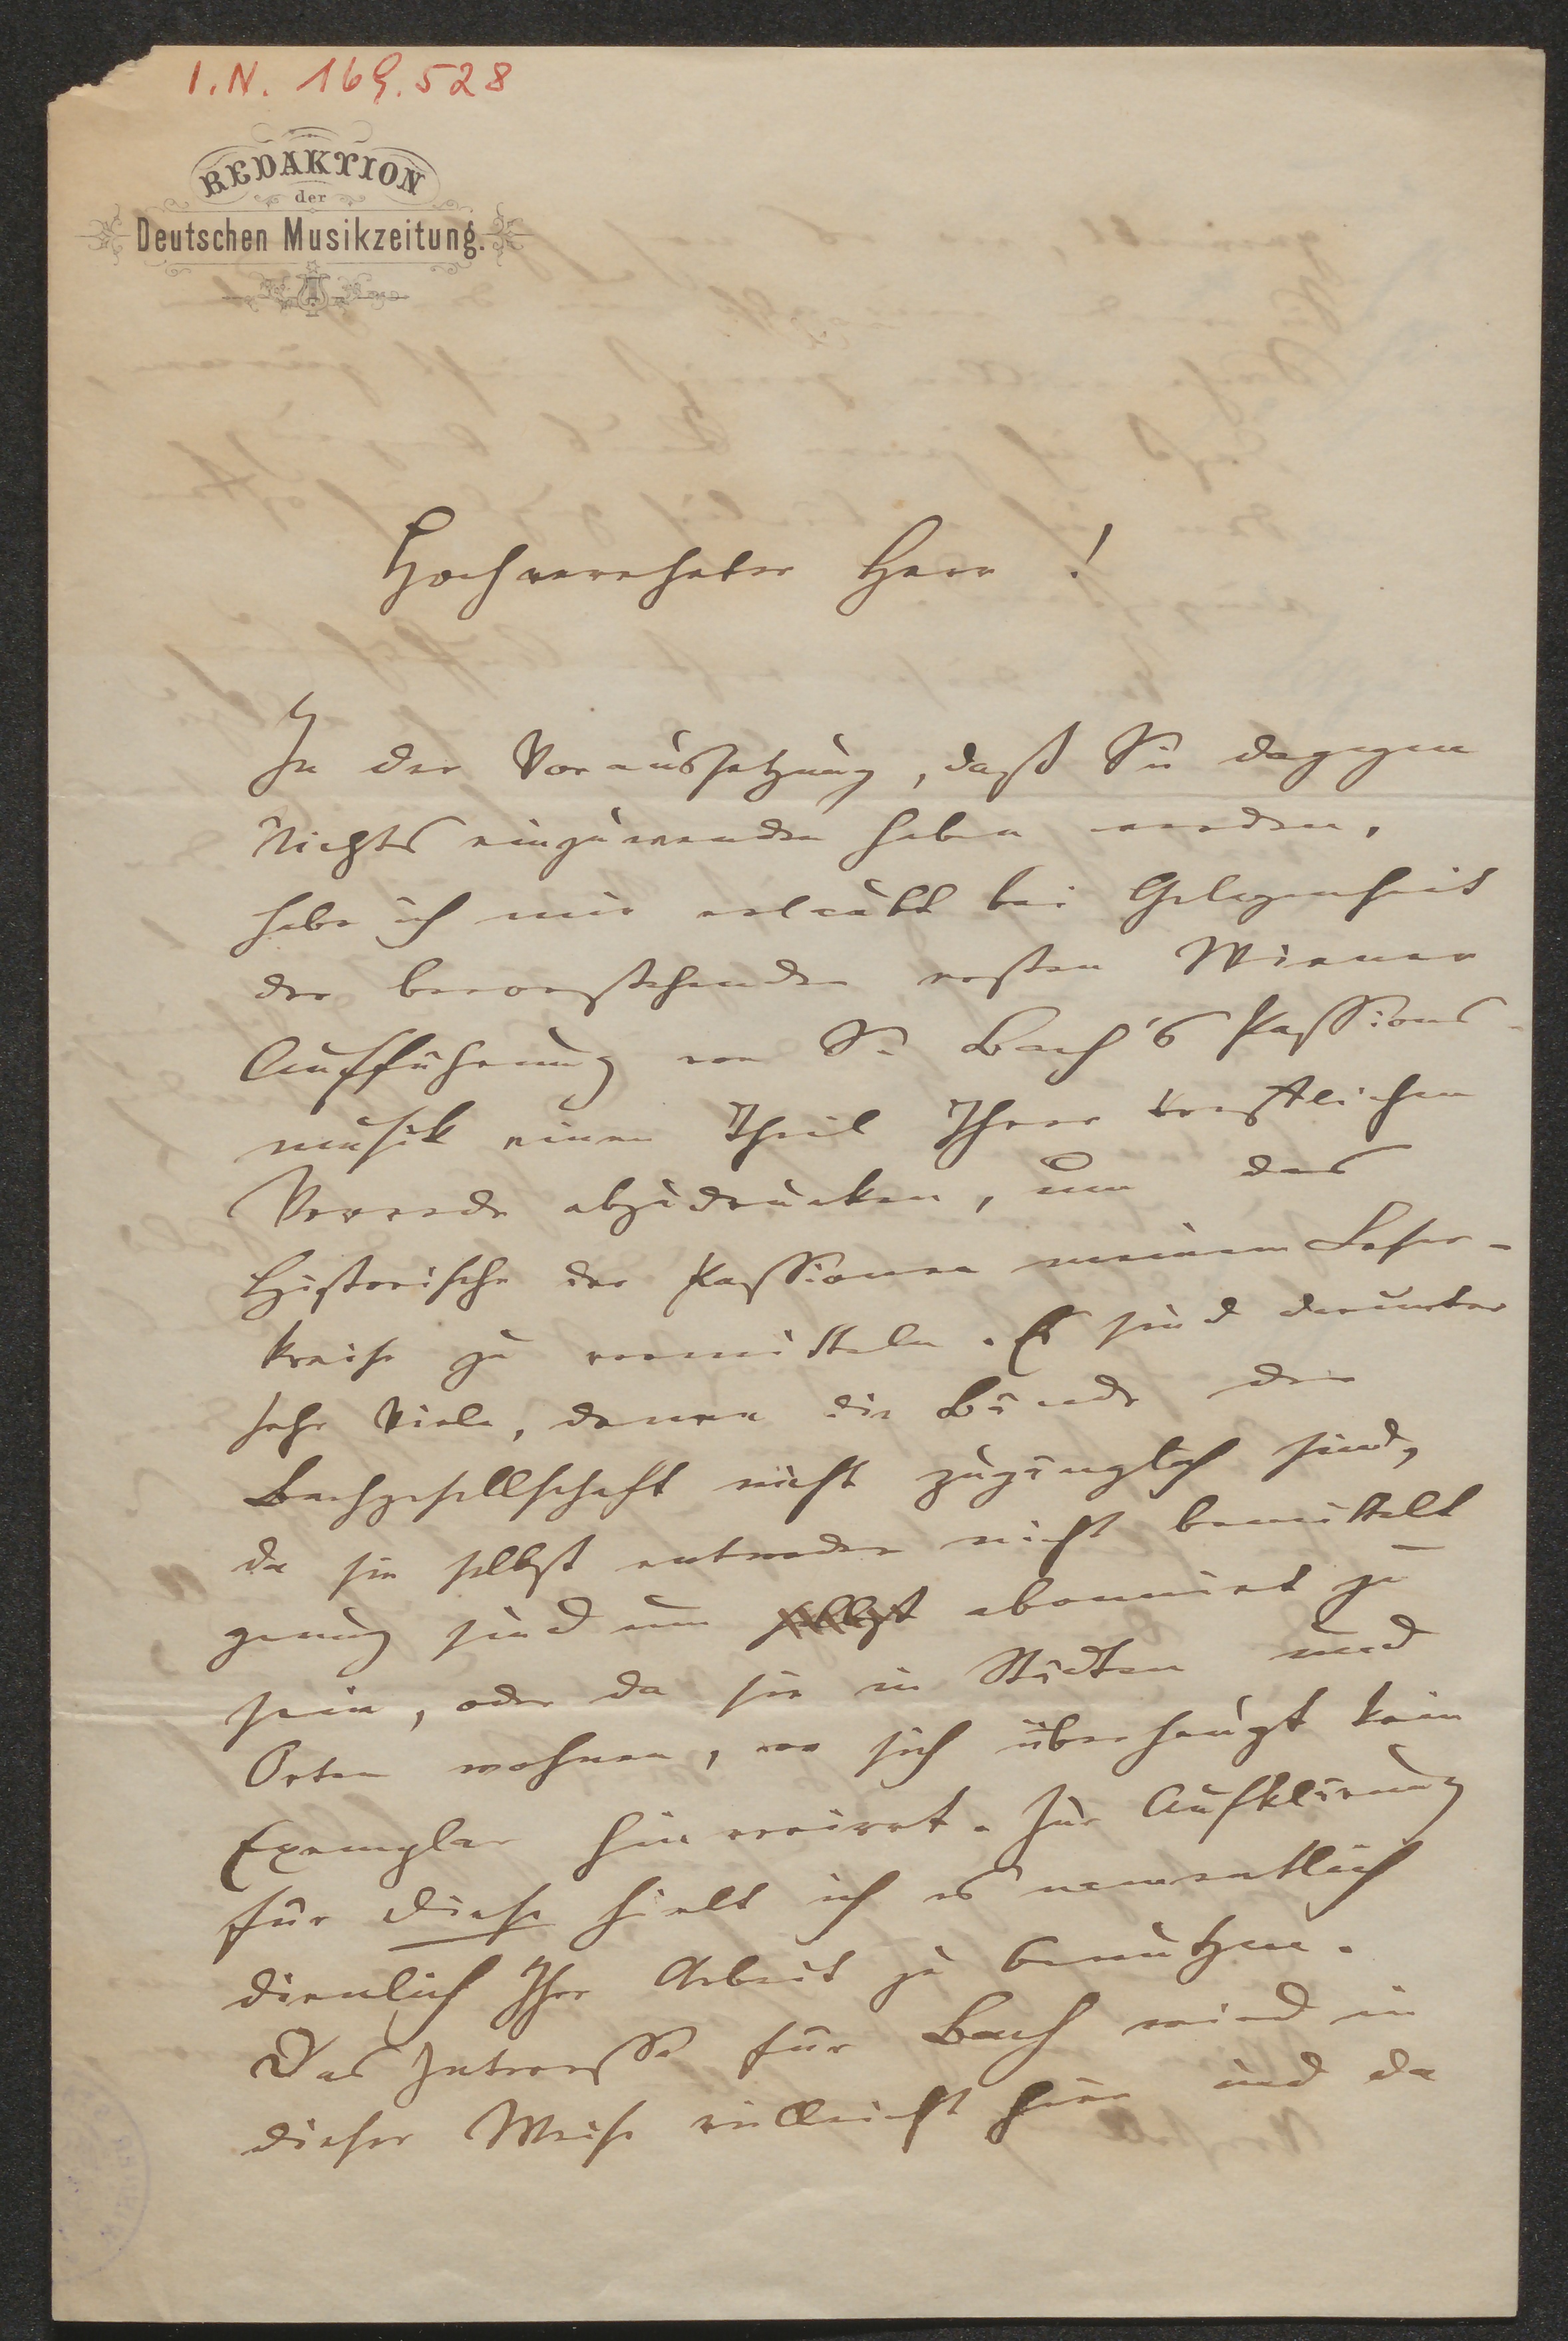 I.N. 169.528
REDAKTION
der
Deutschen Musikzeitung.
Hochverehrter Herr !
In der Voraussetzung, daß Sie dagegen
Nichts einzuwenden haben werden,
habe ich mir erlaubt bei Gelegenheit
der bevorstehenden ersten Wiener
Aufführung von S. Bach's Passions-
musik einen Theil Ihrer trefflichen
Vorrede abzudrucken, um das
Historische der Passionen meinem Leser-
kreise zu vermitteln. Es sind darunter
sehr Viele, denen die Bände der
Bachgesellschaft nicht zugänglich sind,
da sie selbst entweder nicht bemittelt
genug sind um selbst abonnirt zu
sein, oder da sie in Städten und
Orten wohnen, wo sich überhaupt kein
Exemplar hin verirrt. Zur Aufklärung
für diese hielt ich es namentlich
dienlich Ihre Arbeit zu benützen.
Das Interesse für Bach wird in
dieser Weise vielleicht hier und da